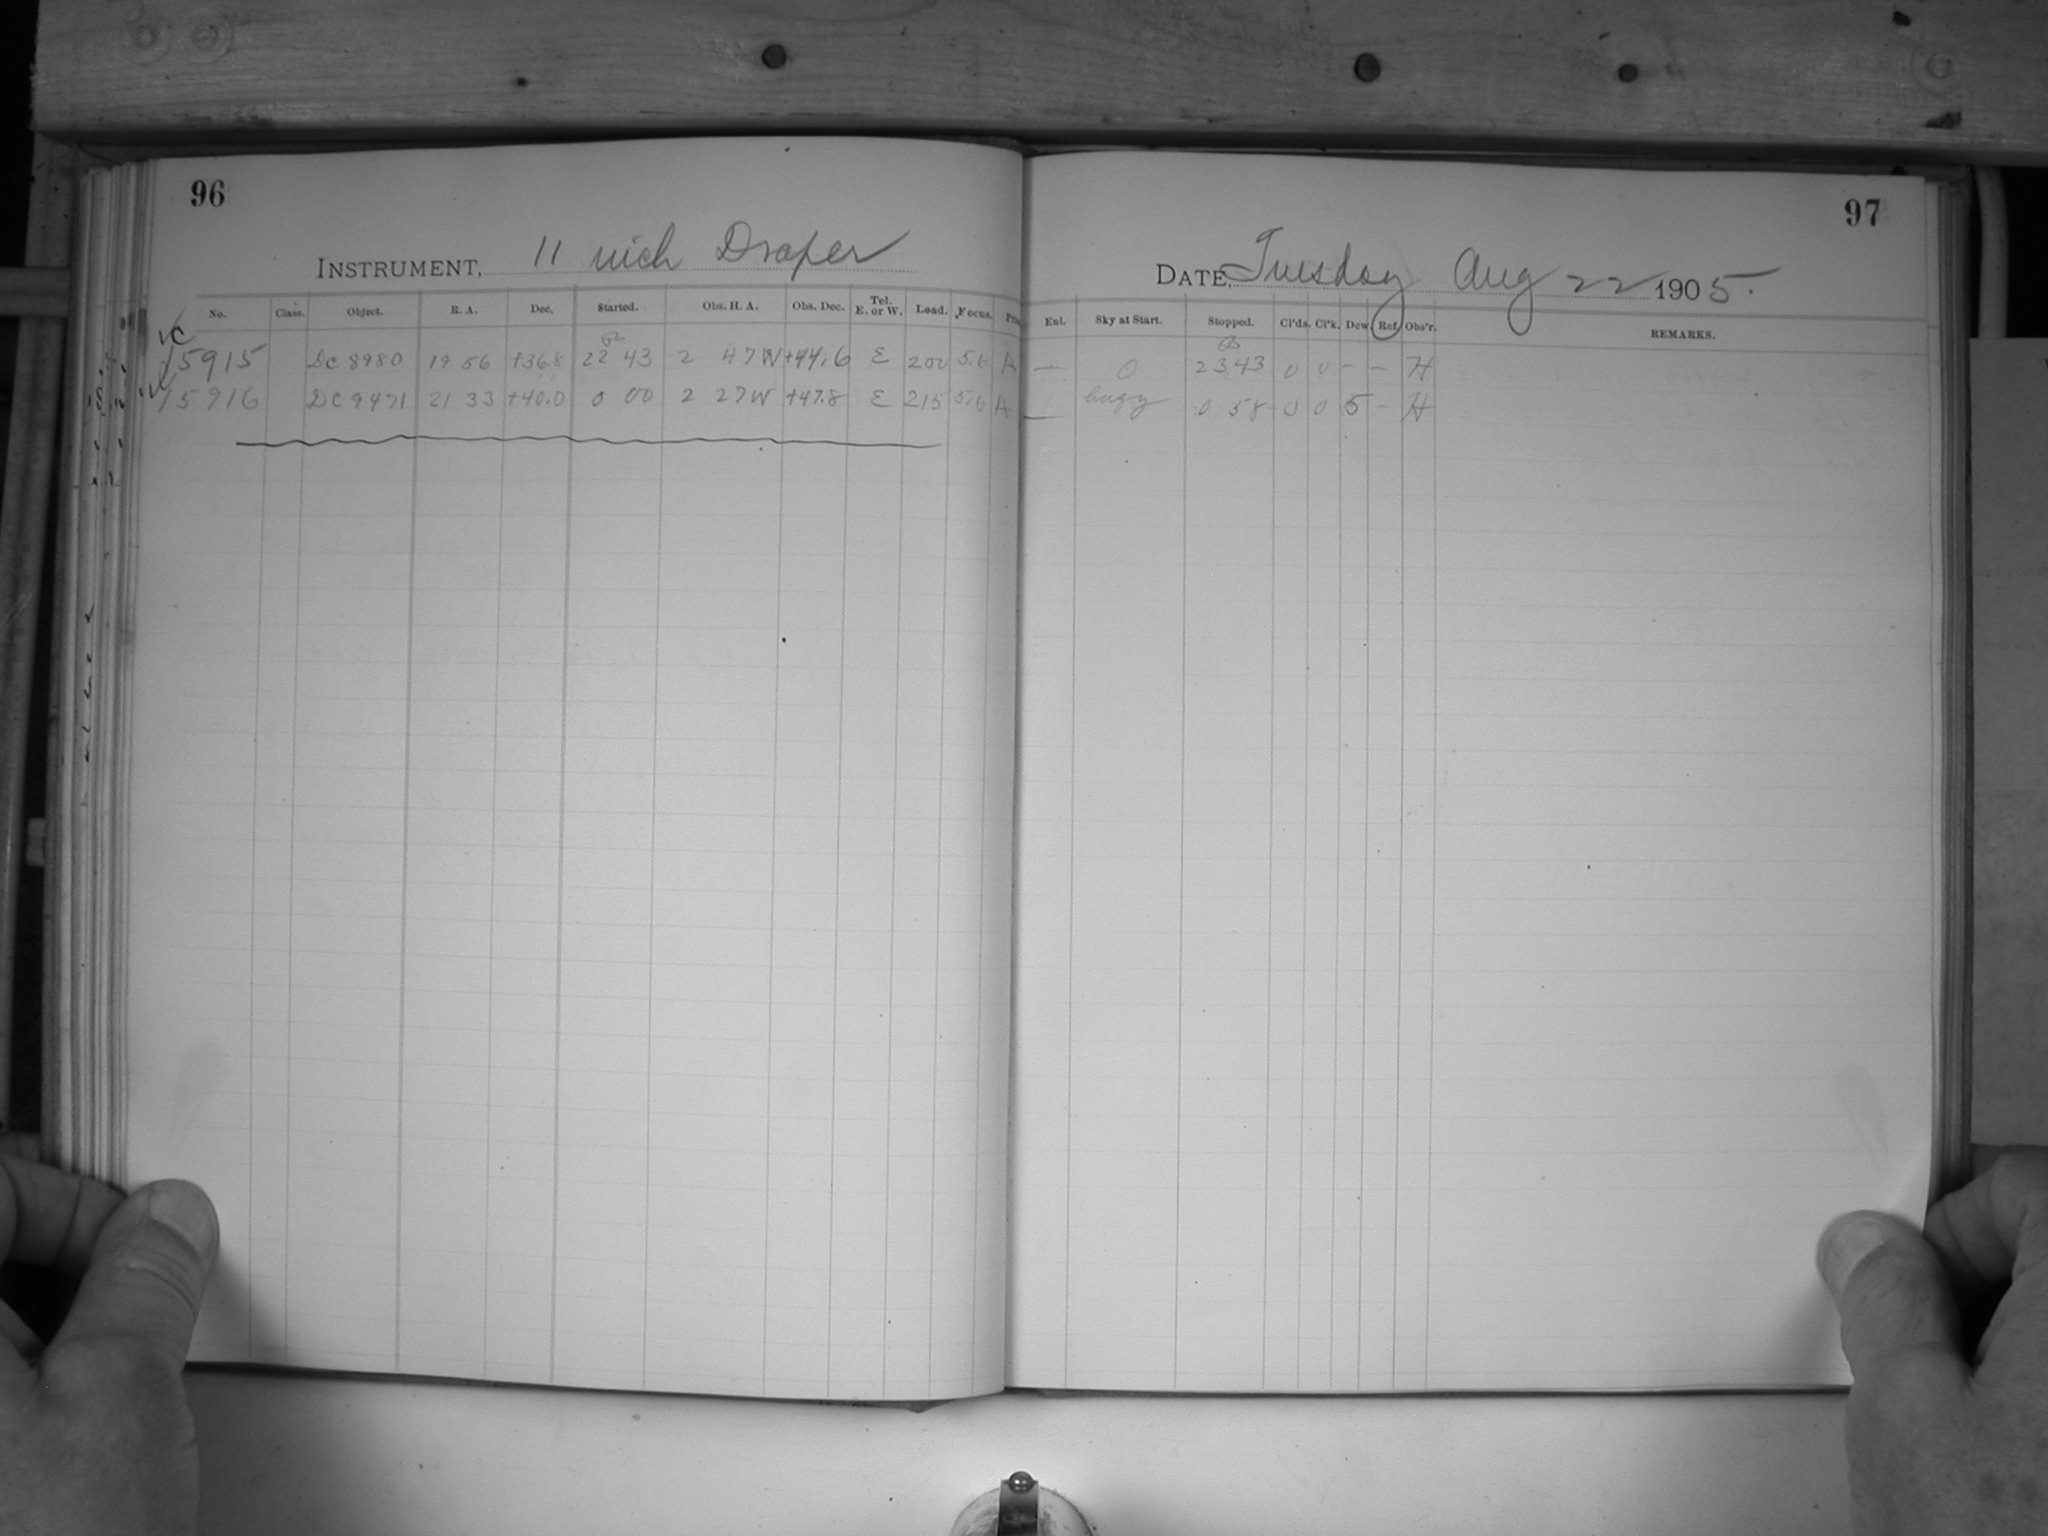 96
INSTRUMENT, 11 inch Draper
No. Class. Object. R. A. Dec. Started. Obs. H. A. Obs. Dec. Tel. E. or W. Load. Focus.
15915 DC 8980 19 56 +36.8 22 43 2 47 W +44.6 E 200 5.6 A
15916 DC 9471 21 33 +40.0 0 00 2 27 W +47.8 E 215 5.6 A
97
DATE, Tuesday Aug 22 1905.
Enl. Sky at Start. Stopped. Cl'ds. Cl'k. Dew. Ref. Obs'r. REMARKS.
— 0 23 43 0 0 - - H
— hazy 0 58 0 0 5 - H